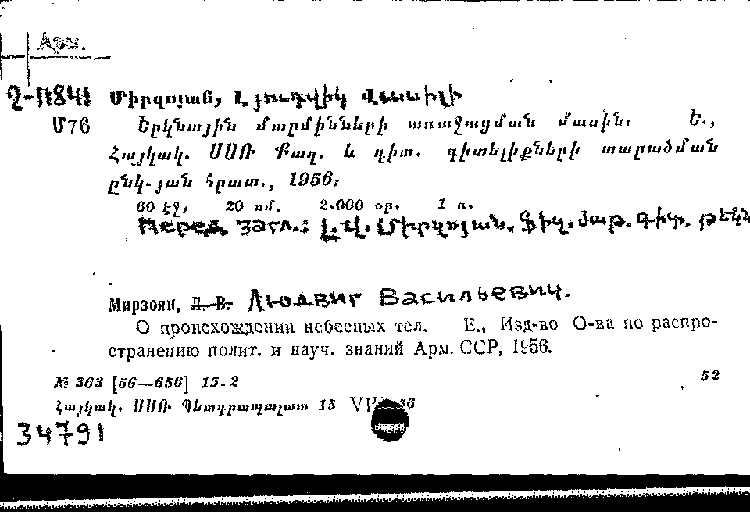 Арм.
2-11841 Միրզոյան, Լյուդվիկ Վասիլի
Մ76 Երկնային մարմինների առաջացման մասին: Ե.,
Հայկակ. ՍՍՌ Քաղ. և գիտ. գիտելիքների տարածման
ընկ-յան հրատ., 1956.
60 էջ, 20 սմ. 2.000 օր. 1 ռ.
Перед загл.: Լ. Վ. Միրզոյան. Ֆիզ. մաթ. գիտ. թեկն
Мирзоян, Л. В. Людвиг Васильевич.
О происхождении небесных тел. Е., Изд-во О-ва по распро-
странению полит. и науч. знаний Арм. ССР, 1956.
№ 303 [56—656] 15.2 52
Հայկակ. ՍՍՌ Պետգրապալատ 15 VIII 56
34791